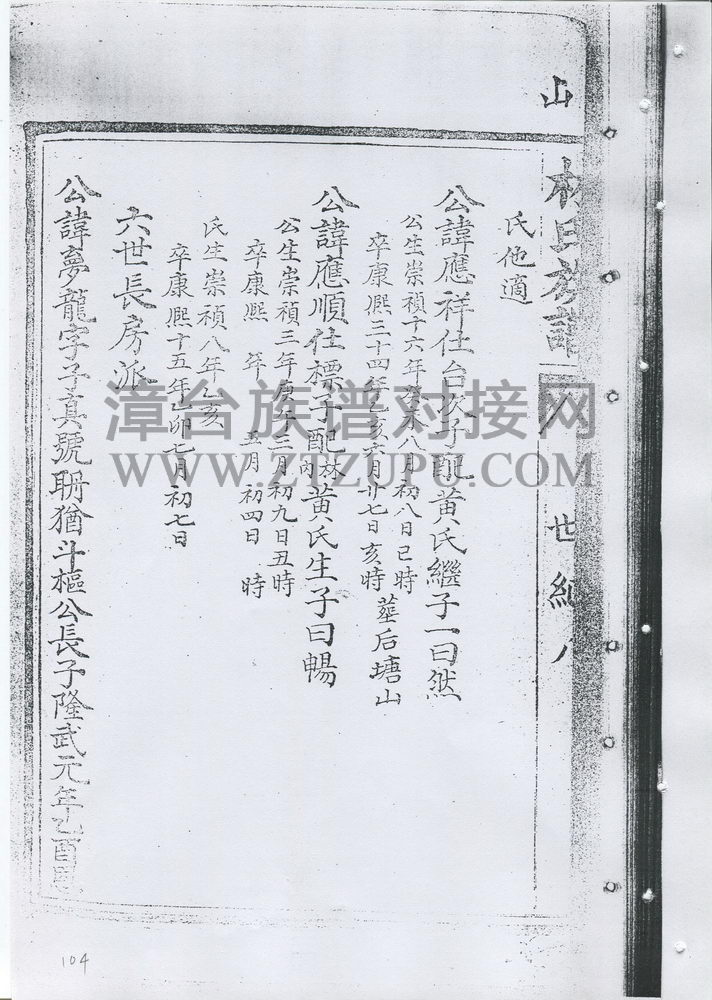 山
林氏族譜
世紀
氏他適
公諱應祥仕台次子配黃氏繼子一曰然
公生崇禎十六年癸未八月初八日巳時
卒康熙三十四年乙亥六月廿七日亥時 葬后塘山
公諱應順仕標子配林內黃氏生子曰暢
公生崇禎三年庚午三月初九日丑時
卒康熙 年 五月初四日 時
氏生崇禎八年乙亥
卒康熙十五年 卯七月初七日
六世長房派
公諱夢龍字子真號聃猶斗樞公長子隆武元年乙酉恩
漳台族谱对接网
WWW.ZTZUPU.COM
104